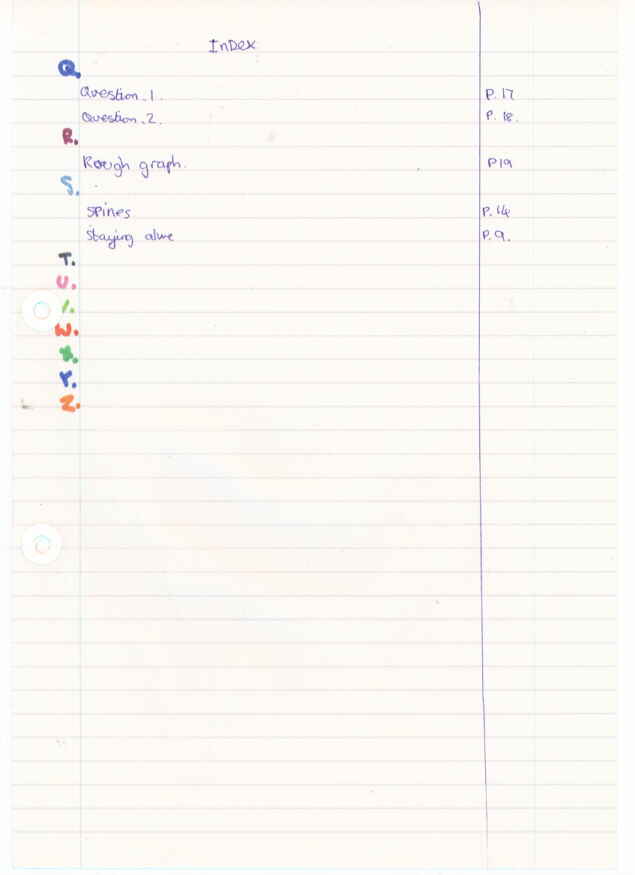 Index
Q.
Question.1. P.17
Question.2. P.18.
R.
Rough graph. P19
S.
spines P.14
Staying alive P.9.
T.
U.
V.
W.
X.
Y.
Z.